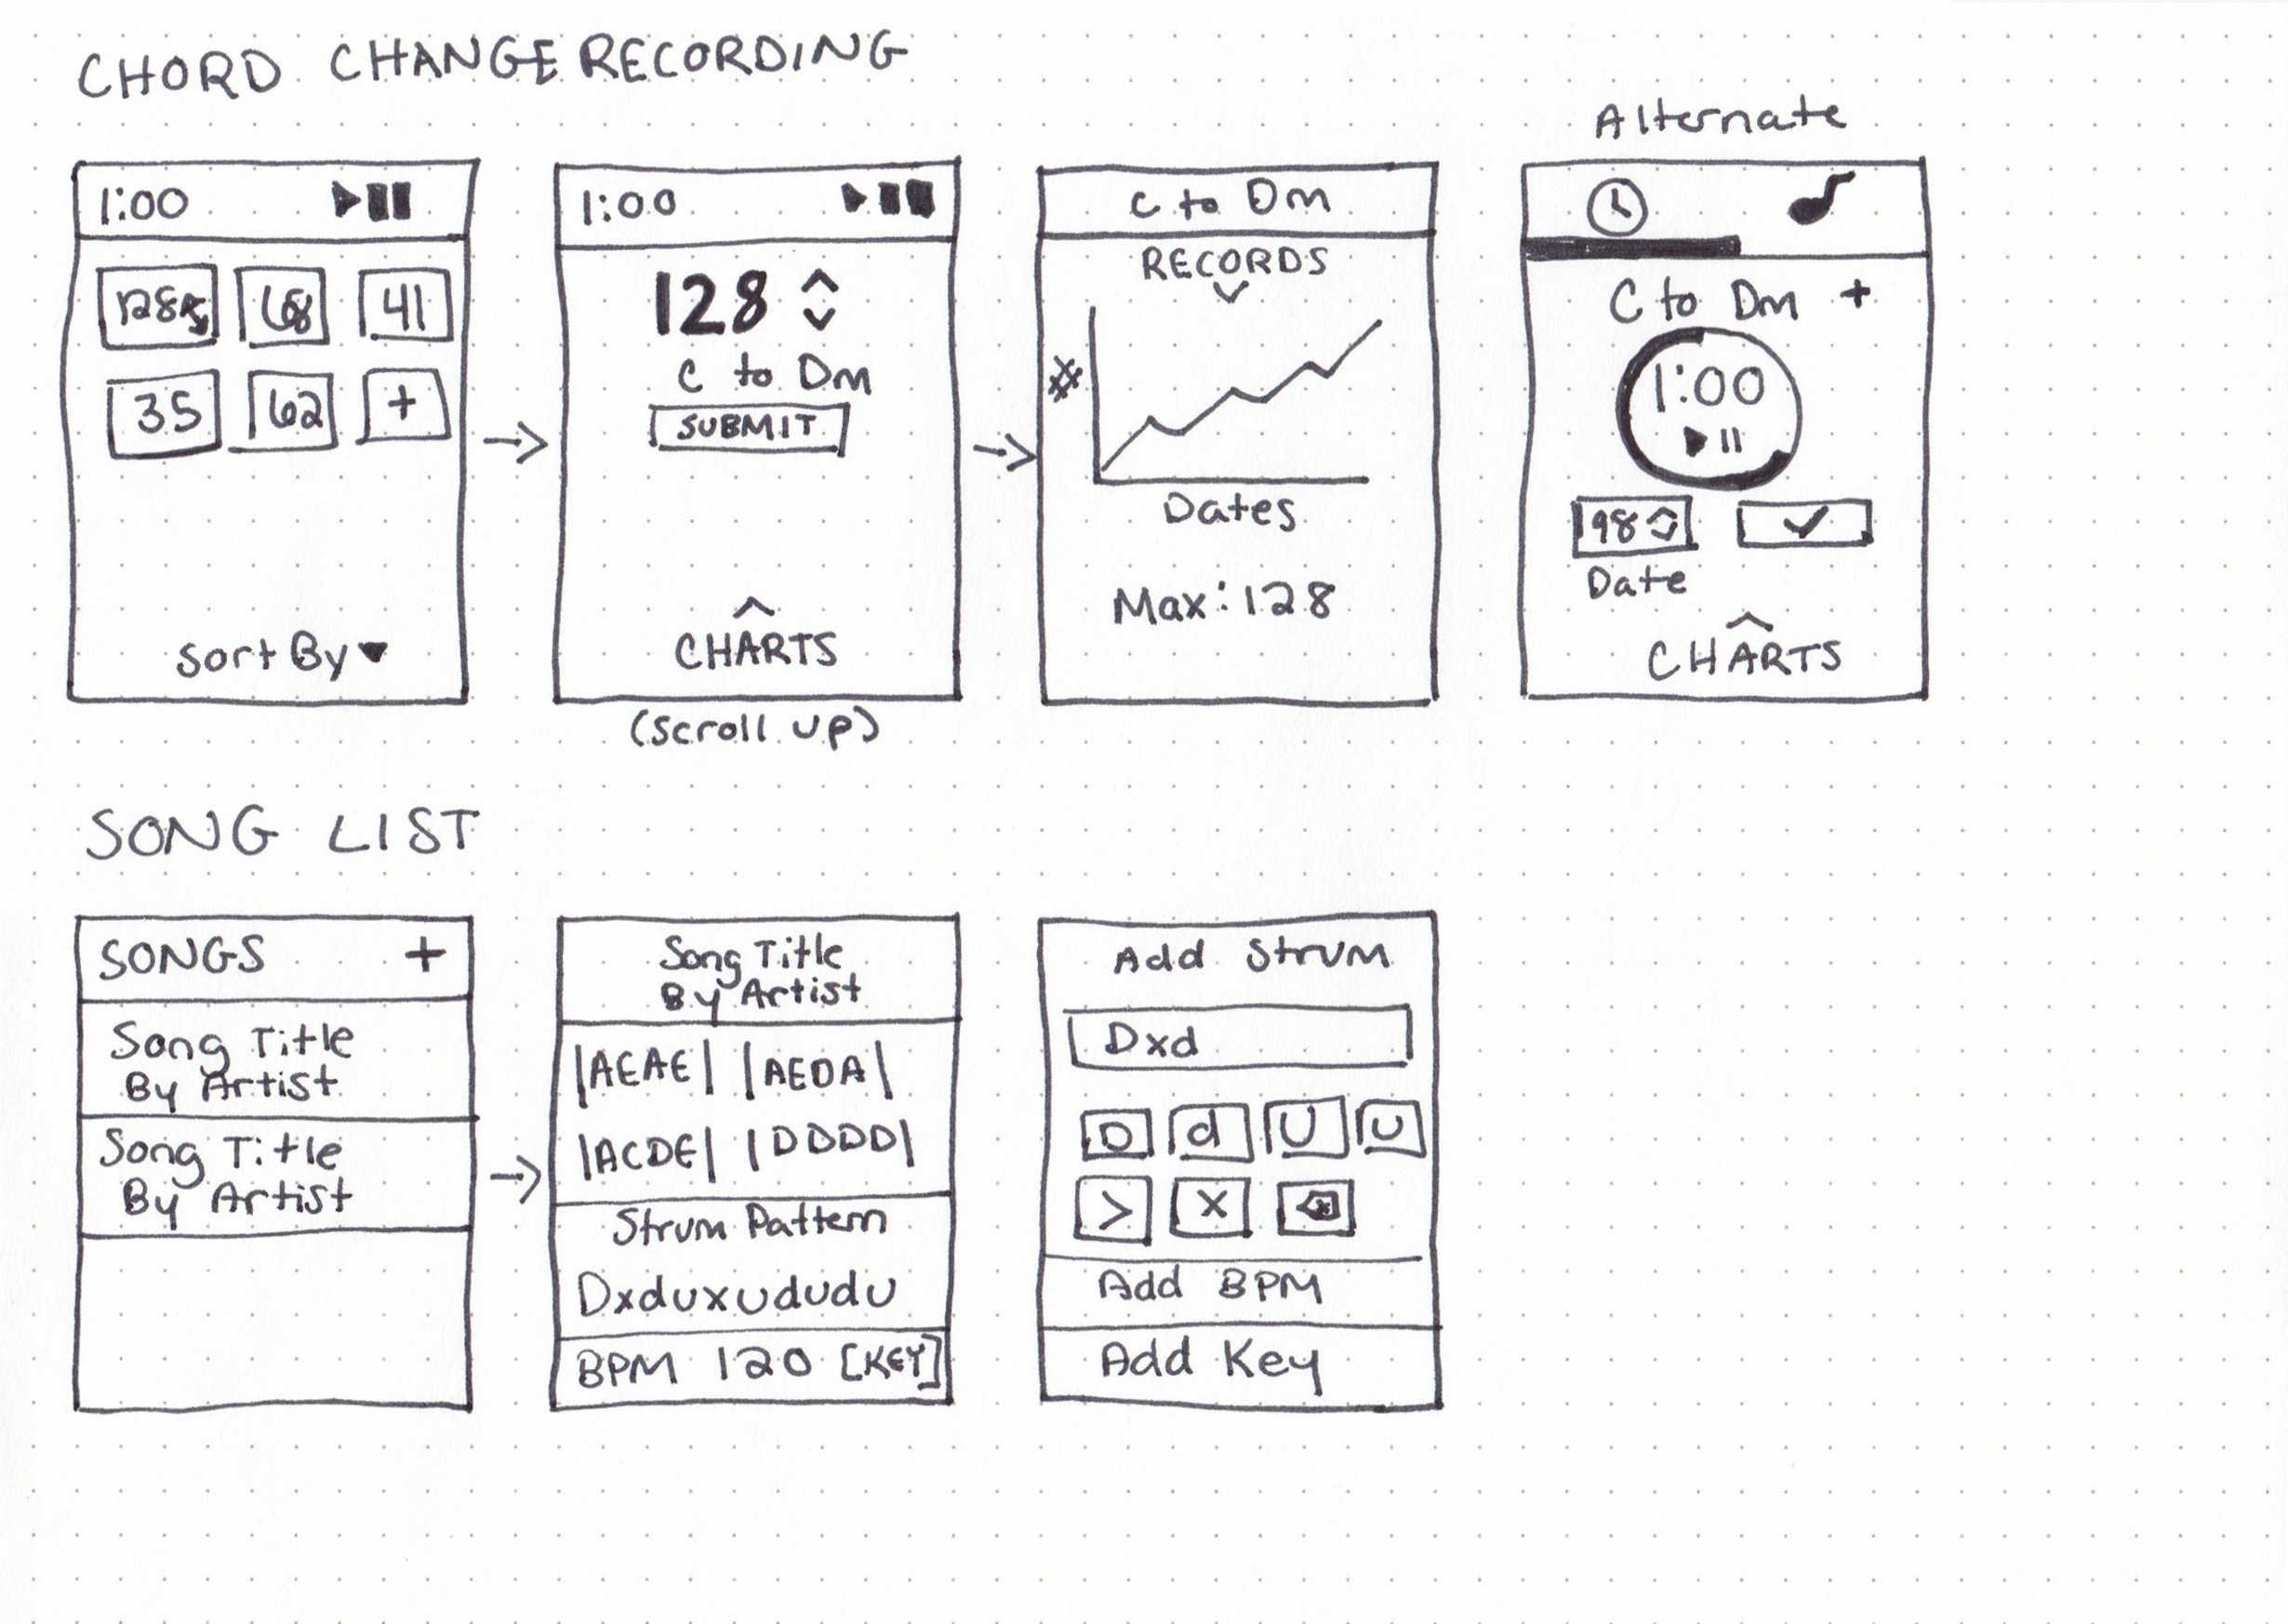 CHORD CHANGE RECORDING
Alternate
1:00
128
68
41
35
62
+
Sort By
1:00
128
C to Dm
SUBMIT
CHARTS
(scroll up)
C to Dm
RECORDS
#
Dates
Max: 128
C to Dm +
1:00
98
Date
CHARTS
SONG LIST
SONGS +
Song Title
By Artist
Song Title
By Artist
Song Title
By Artist
|AEAE| |AEDA|
|ACDE| |DDDD|
Strum Pattern
Dxduxududu
BPM 120 [KEY]
Add Strum
Dxd
D d U u
> x
Add BPM
Add Key